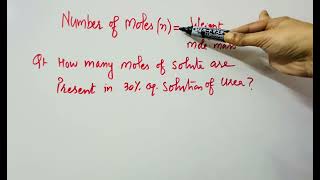 Number of moles (n) =
mole mass
Q1 How many moles of Solute are
Present in 30% aq. Solution of Urea?